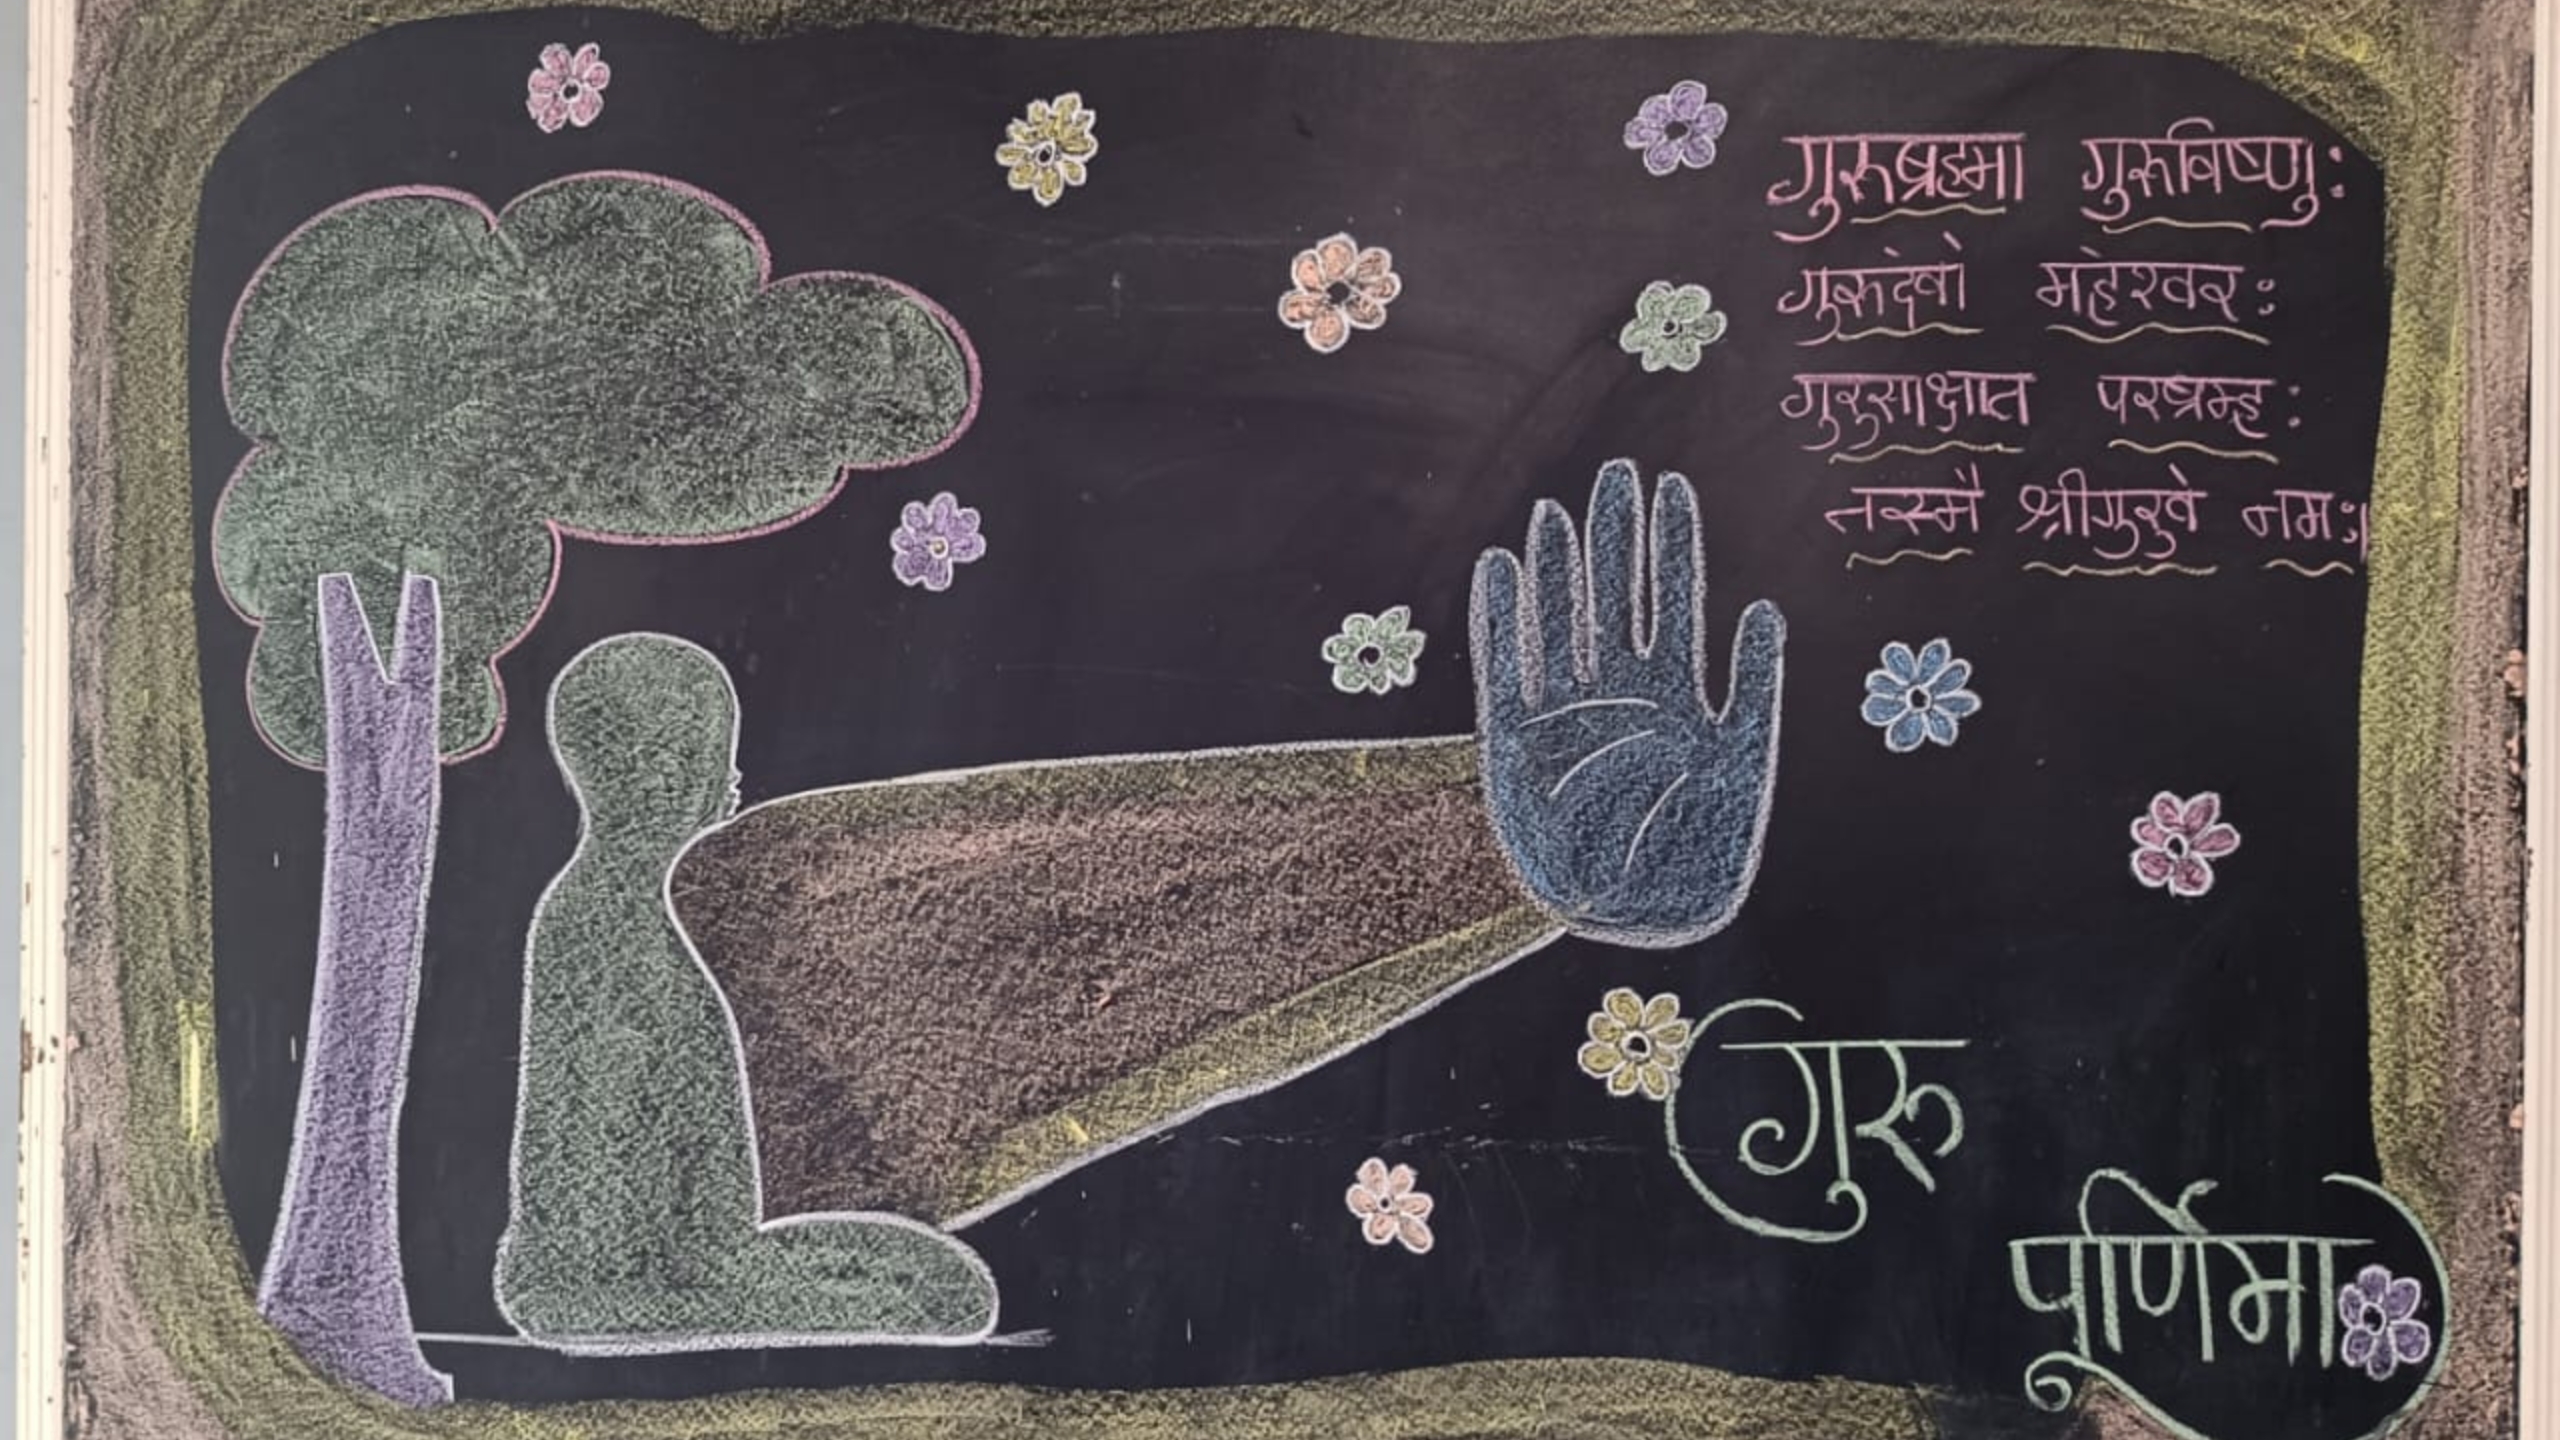 गुरुब्रहमा गुरुर्विष्णु:
गुरुदेवो महेश्वर:
गुरुसाक्षात परब्रम्ह:
तस्मै श्रीगुरुवे नम:।
गुरु
पूर्णिमा